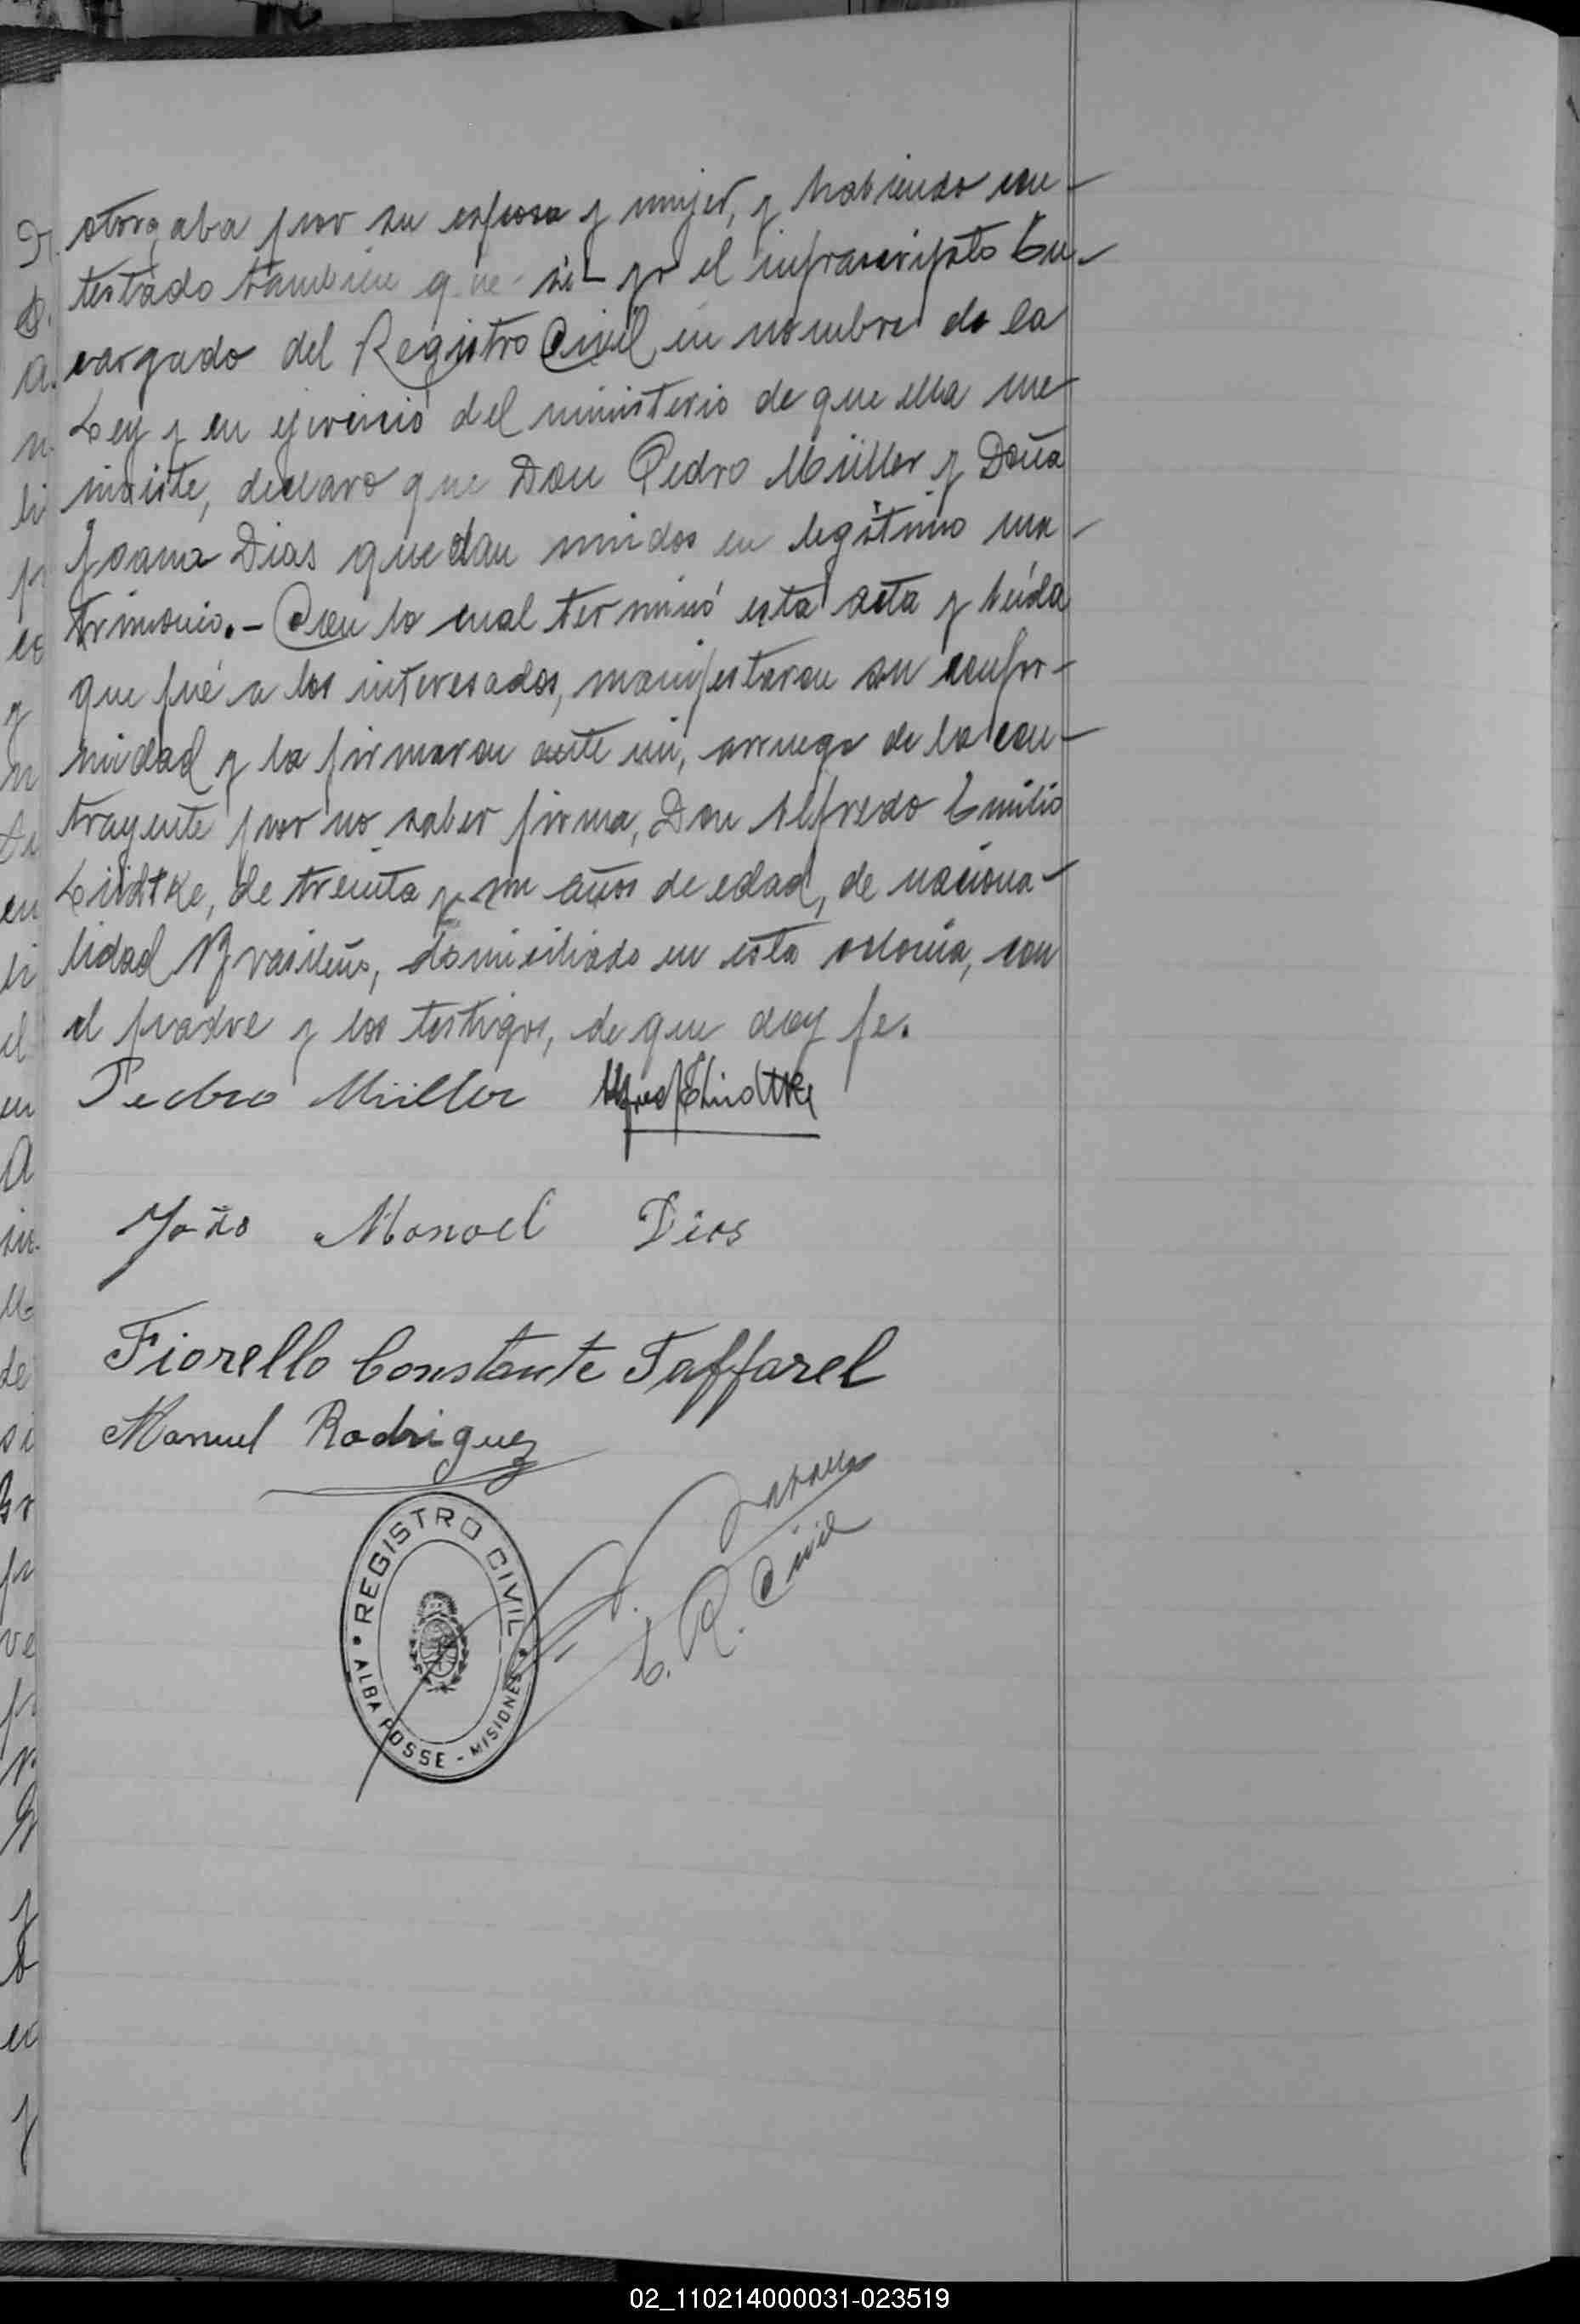 otorgaba por su esposa y mujer, y habiendo con-
testado tambien que si- yo el infrascripto En-
cargado del Registro Civil, en nombre de la
Ley y en ejercicio del ministerio de que ella me
inviste, declaro que Don Pedro Müller y Doña
Joana Dias quedan unidos en legítimo ma-
trimonio.- Con lo cual terminó esta acta y leída
que fué a los interesados, manifestaron su confor-
midad y la firmaron ante mi, arruego de la con-
trayente por no saber firma, Don Alfredo Emilio
Lüdtke, de treinta y un años de edad, de naciona-
lidad Brasileño, domiciliado en esta colonia, con
el padre y los testigos, de que doy fe.
Pedro Müller
João Manoel Dias
Fiorello Constante Taffarel
Manuel Rodriguez
REGISTRO CIVIL
ALBA POSSE - MISIONES
E. R. Civil
02_110214000031-023519